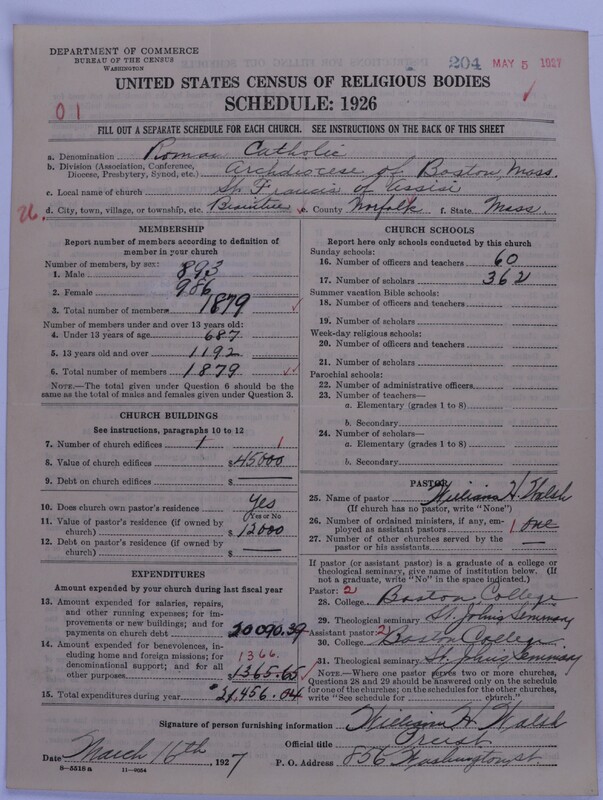 DEPARTMENT OF COMMERCE
BUREAU OF THE CENSUS
WASHINGTON
204 MAY 5 1927
UNITED STATES CENSUS OF RELIGIOUS BODIES
SCHEDULE: 1926
01
FILL OUT A SEPARATE SCHEDULE FOR EACH CHURCH. SEE INSTRUCTIONS ON THE BACK OF THIS SHEET
a. Denomination Roman Catholic
b. Division (Association, Conference, Diocese, Presbytery, Synod, etc.) Archdiocese of Boston Mass.
c. Local name of church St. Francis of Assisi
26. d. City, town, village, or township, etc. Braintree e. County Norfolk f. State Mass.
MEMBERSHIP
Report number of members according to definition of
member in your church
Number of members, by sex:
1. Male 893
2. Female 986
3. Total number of members 1879
Number of members under and over 13 years old:
4. Under 13 years of age 687
5. 13 years old and over 1192
6. Total number of members 1879
NOTE.—The total given under Question 6 should be the
same as the total of males and females given under Question 3.
CHURCH BUILDINGS
See instructions, paragraphs 10 to 12
7. Number of church edifices 1 1
8. Value of church edifices $45000
9. Debt on church edifices $
10. Does church own pastor's residence? Yes
(Yes or No)
11. Value of pastor's residence (if owned by
church) $12000
12. Debt on pastor's residence (if owned by
church) $
EXPENDITURES
Amount expended by your church during last fiscal year
13. Amount expended for salaries, repairs,
and other running expenses; for im-
provements or new building; and for
payments on church debt 20090.39
14. Amount expended for benevolences, in-
cluding home and foreign missions; for
denominational support; and for all
other purposes 1366. 1365.65
15. Total expenditures during year $21,456.04
CHURCH SCHOOLS
Report here only schools conducted by this church
Sunday schools:
16. Number of officers and teachers 60
17. Number of scholars 362
Summer vacation Bible schools:
18. Number of officers and teachers
19. Number of scholars
Week-day religious schools:
20. Number of officers and teachers
21. Number of scholars
Parochial schools:
22. Number of administrative officers
23. Number of teachers—
a. Elementary (grades 1 to 8)
b. Secondary
24. Number of scholars—
a. Elementary (grades 1 to 8)
b. Secondary
PASTOR
25. Name of pastor William H. Walsh
(If church has no pastor, write "None")
26. Number of ordained ministers, if any, em-
ployed as assistant pastors 1 one
27. Number of other churches served by the
pastor or his assistants
If pastor (or assistant pastor) is a graduate of a college or
theological seminary, give name of institution below. (If
not a graduate, write "No" in the space indicated.)
Pastor: 2
28. College Boston College
29. Theological seminary St. John's Seminary
Assistant pastor: 2
30. College Boston College
31. Theological seminary St. John's Seminary
NOTE.—Where one pastor serves two or more churches,
Questions 28 and 29 should be answered only on the schedule
for one of the churches; on the schedules for the other churches,
write "See schedule for church."
Signature of person furnishing information William H. Walsh
Official title Priest
Date March 16th, 1927 P. O. Address 856 Washington St
8—5518 a 11—9054